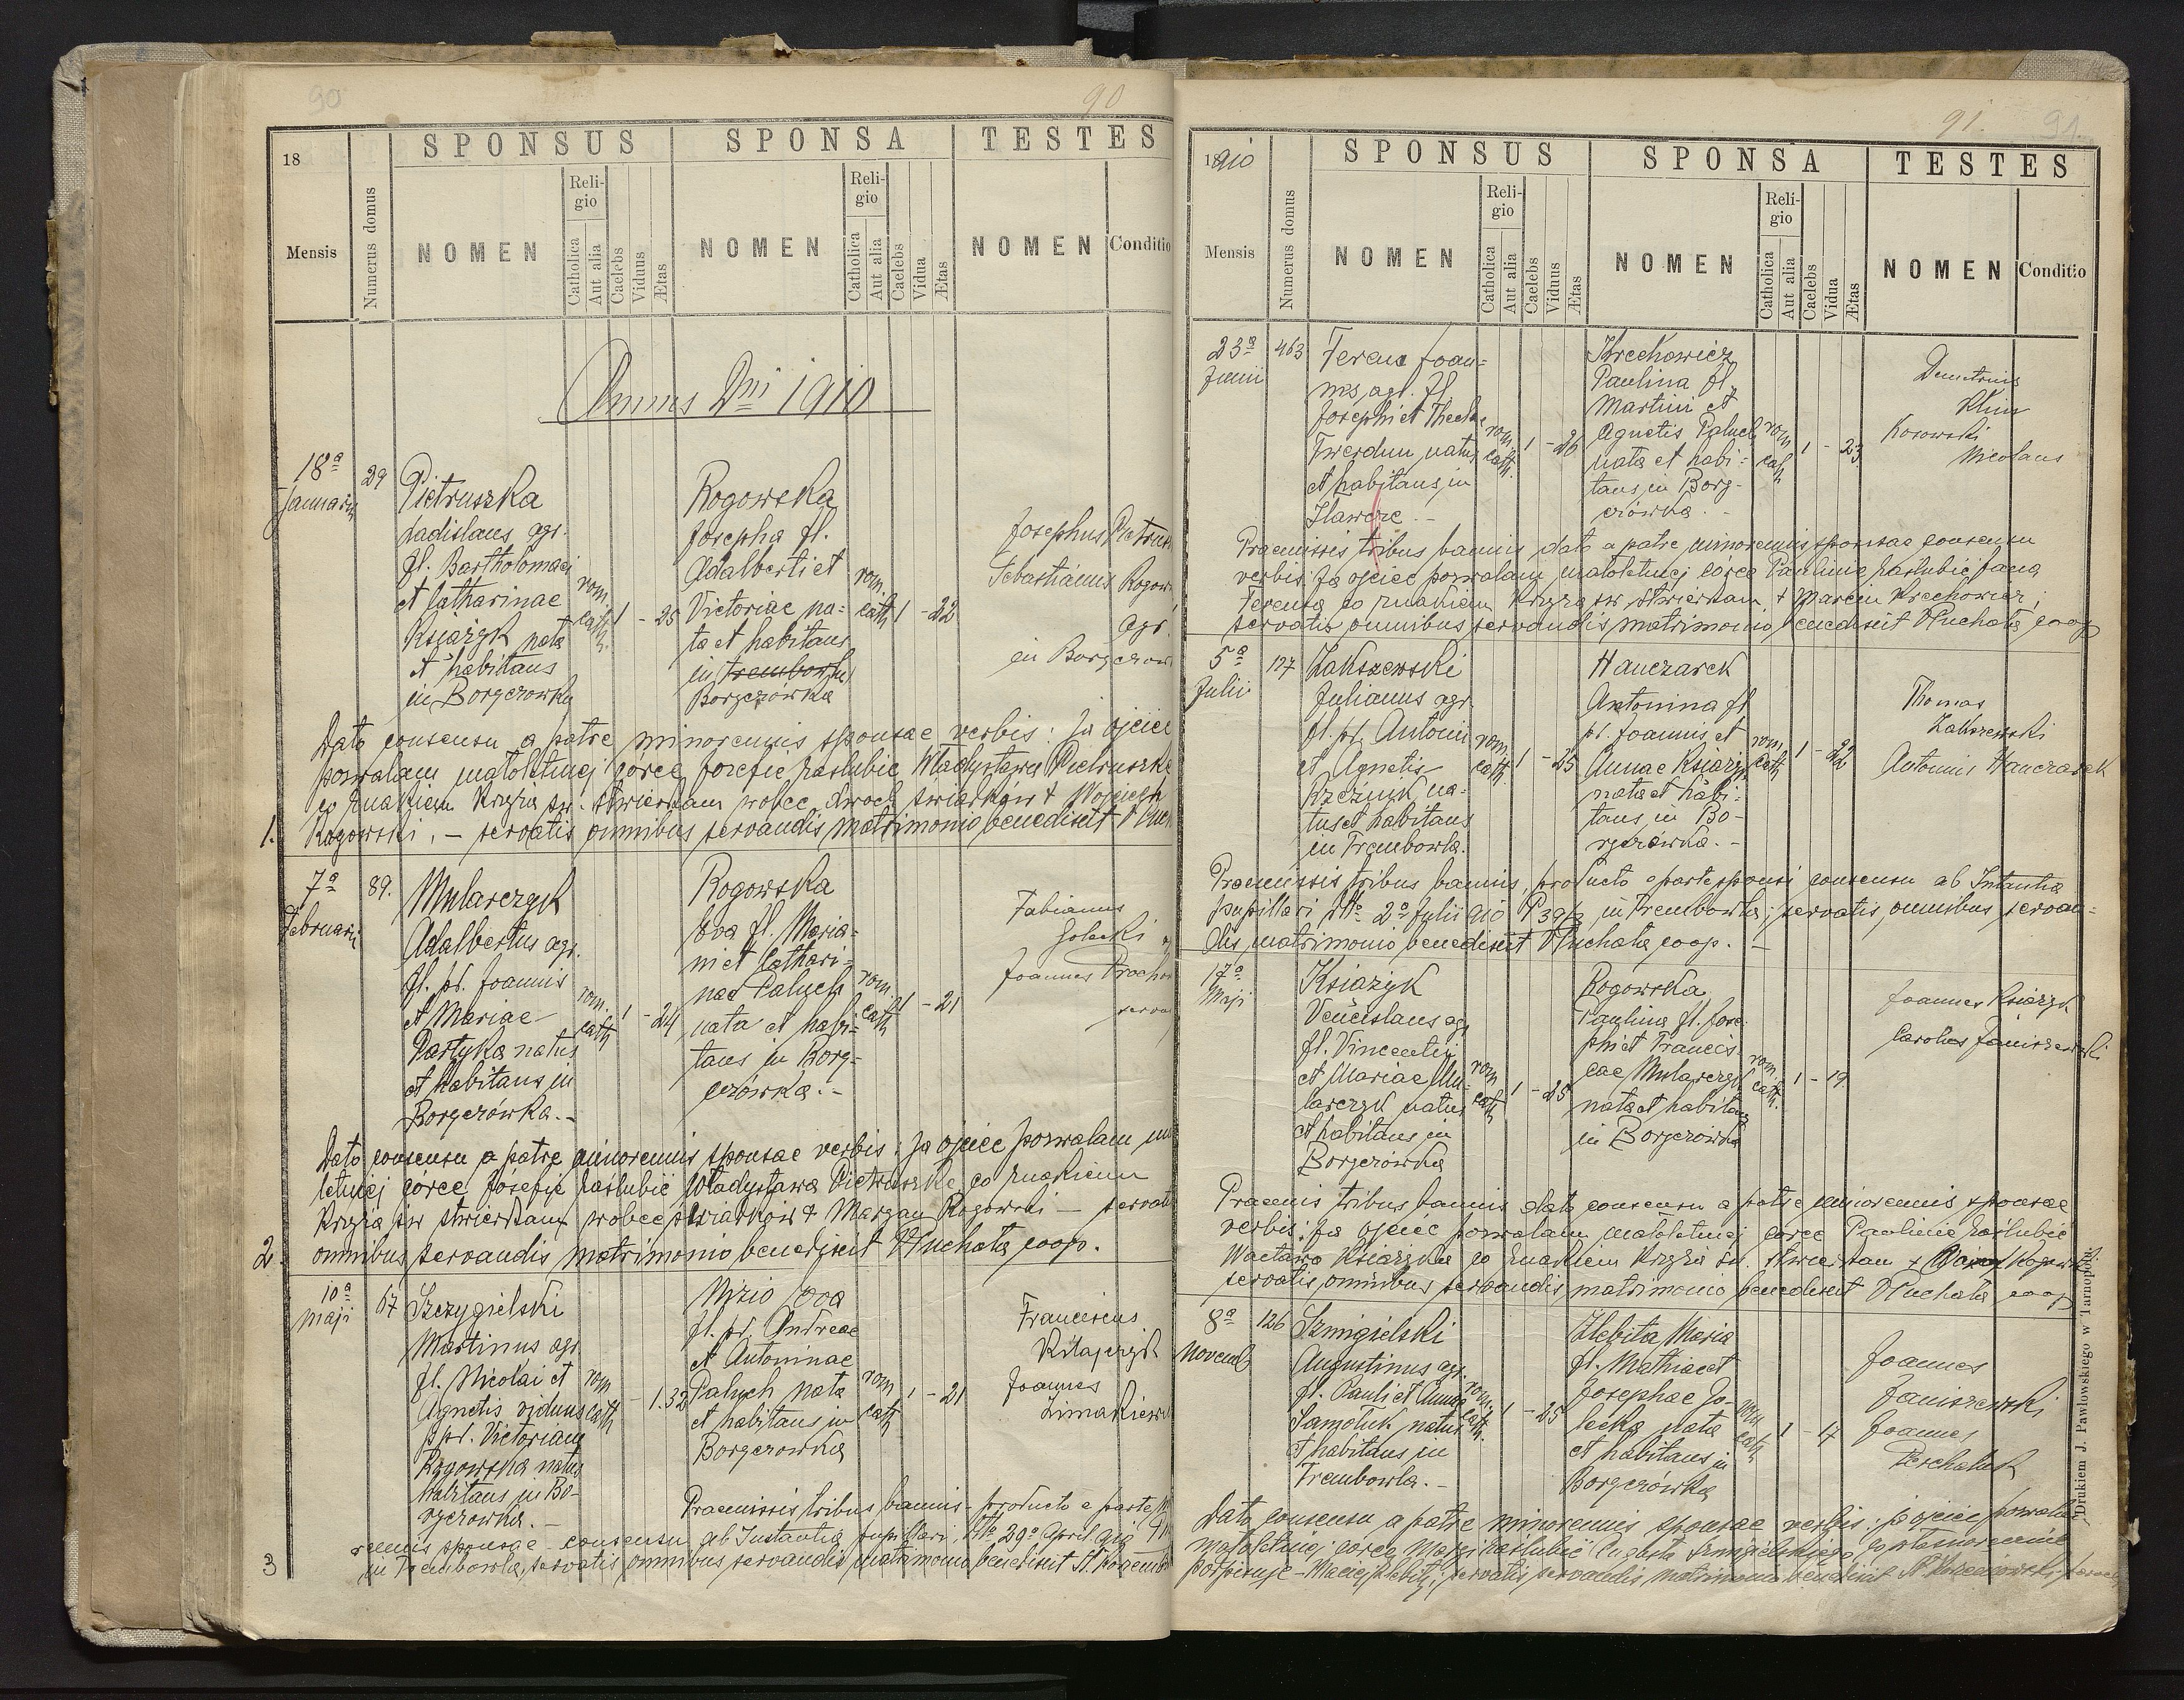 90
90
18
SPONSUS
SPONSA
TESTES
Mensis
Numerus domus
NOMEN
Religio
Catholica
Aut alia
Caelebs
Viduus
Ætas
NOMEN
Religio
Catholica
Aut alia
Caelebs
Vidua
Ætas
NOMEN
Conditio
Annus Dni 1910
18a
Januarii
29
Pietruszka
Ladislaus agr.
fl. Bartholomaei
et Catharinae
Książyk nata
et habitans
in Borgczowka
rom.
cath.
1 - 25
Rogowska
Josepha fl.
Adalberti et
Victoriae na-
ta et habitans
in Trembowla
Borgczówka
rom.
cath
1 - 22
Josephus Pietrus
Sebastianus Rogow
agr.
in Borgczow
Dato consensu a patre minorennis sponsae verbis: Ja ojciec
pozwalam małoletniej córce Józefie zaślubić Władysława Pietruszkę
co znakiem krzyża św. stwierdzam wobec dwóch świadków + Wojciech
1. Rogowski. – servatis omnibus servandis matrimonio benedixit
7a
Februarii
89.
Mularczyk
Adalbertus agr.
fl. pd. Joannis
et Mariae
Partyka natus
et habitans in
Borgczówka. -
rom.
cath
1 - 24
Rogowska
Eva fl. Maria-
ni et Cathari-
nae Paluch
nata et habi-
tans in Borg-
czówka. -
rom.
cath
1 - 21
Fabianus
Golecki
Joannes
Dato consensu a patre minorennis sponsae verbis: Ja ojciec pozwalam
letniej córce Józefie zaślubić Władysława Pietruszkę co znakiem
krzyża św stwierdzam wobec świadków + Maryan Rogowski –
2. omnibus servandis matrimonio benedixit Puchała coop.
10a
Maji
67
Szczygielski
Martinus agr.
fl. Nicolai et
Agnetis viduus
p. pd. Victoriam
Rogowska natus
habitans in Bo-
rgczowka. -
rom
cath
- 1. 32
Mizio Eva
fl. pd. Andreae
et Antoninae
Paluch nata
et habitans in
Borgczowka
rom
cath
1 - 21
Franciscus
Kitajczyk
Joannes
Praemissis tribus bannis - producto a parte
rennis sponsae consensu ab Instantia pupillari dtto 29a April 910
3 in Trembowla, servatis omnibus servandis matrimonio benedixit
91.
91.
1910
SPONSUS
SPONSA
TESTES
Mensis
Numerus domus
NOMEN
Religio
Catholica
Aut alia
Caelebs
Viduus
Ætas
NOMEN
Religio
Catholica
Aut alia
Caelebs
Vidua
Ætas
NOMEN
Conditio
23a
Junii
463
Ferenz Joan-
nes, agr. fl.
Josephi et Theclae
Twerdun natus
et habitans in
Ilawcze. -
rom
cath.
1 - 26
Krechowicz
Paulina fl.
Martini et
Agnetis Paluch
nata et habi-
tans in Borg-
czówka. -
rom
cath
1 - 23
Demetrius
Klim
Kosowski
Nicolaus
Praemissis tribus bannis, dato a patre minorennis sponsae consensu
verbis: Ja ojciec pozwalam małoletniej córce Paulinie zaślubić Jana
Ferenza co znakiem krzyża św stwierdzam + Marcin Krechowicz;
servatis omnibus servandis matrimonio benedixit Puchała coop
5a
Julii
127
Zakszewski
Julianus agr.
fl. pd. Antonii
et Agnetis
na-
tus et habitans
in Trembowla.
rom.
cath.
1 - 25
Hanczarek
Antonina fl
pd. Joannis et
Annae Książyk
nata et habi-
tans in Bo-
rgczówka. -
rom
cath
1 - 22
Thomas
Zakszewski
Antonius Hanczarek
Praemissis tribus bannis, producto a parte sponsi consensu ab Instantia
pupillari dtto 2a Julii 910 P 39/2 in Trembowla; servatis omnibus servan-
dis matrimonio benedixit Puchała coop. -
17a
Maji
Książyk
Venceslaus agr
fl. Vincentii
et Mariae Mu-
larczyk natus
et habitans in
Borgczówka
rom
cath
1 - 25
Rogowska
Paulina fl. Jose-
phi et Francis-
cae Mularczyk
nata et habitans
in Borgczówka
rom
cath.
1 - 19
Joannes Książyk
Carolus Janiszewski
Praemis tribus bannis dato consensu a patre minorennis sponsae
verbis: Ja ojciec pozwalam małoletniej córce Paulinie zaślubić
Wacława Książyka co znakiem krzyża św. stwierdzam +
servatis omnibus servandis matrimonio benedixit Puchała coop
8a
Novemb
126
Szmigielski
Augustinus agr.
fl. Pauli et Annae
Samotuk natus
et habitans in
Trembowla. -
rom.
cath.
1 - 25
Chlebita Maria
fl. Mathiae et
Josephae Go-
lecka nata
et habitans in
Borgczówka
rom
cath
1 -
Joannes
Janiszewski
Joannes
Dato consensu a patre minorennis sponsae verbis: ja ojciec pozwalam
małoletniej córce Maryi zaślubić Augusta Szmigielskiego, co własnoręcznie
podpisuję - Maciej Chlebita; servatis servandis matrimonio benedixit
Drukiem J. Pawłowskiego w Tarnopolu.